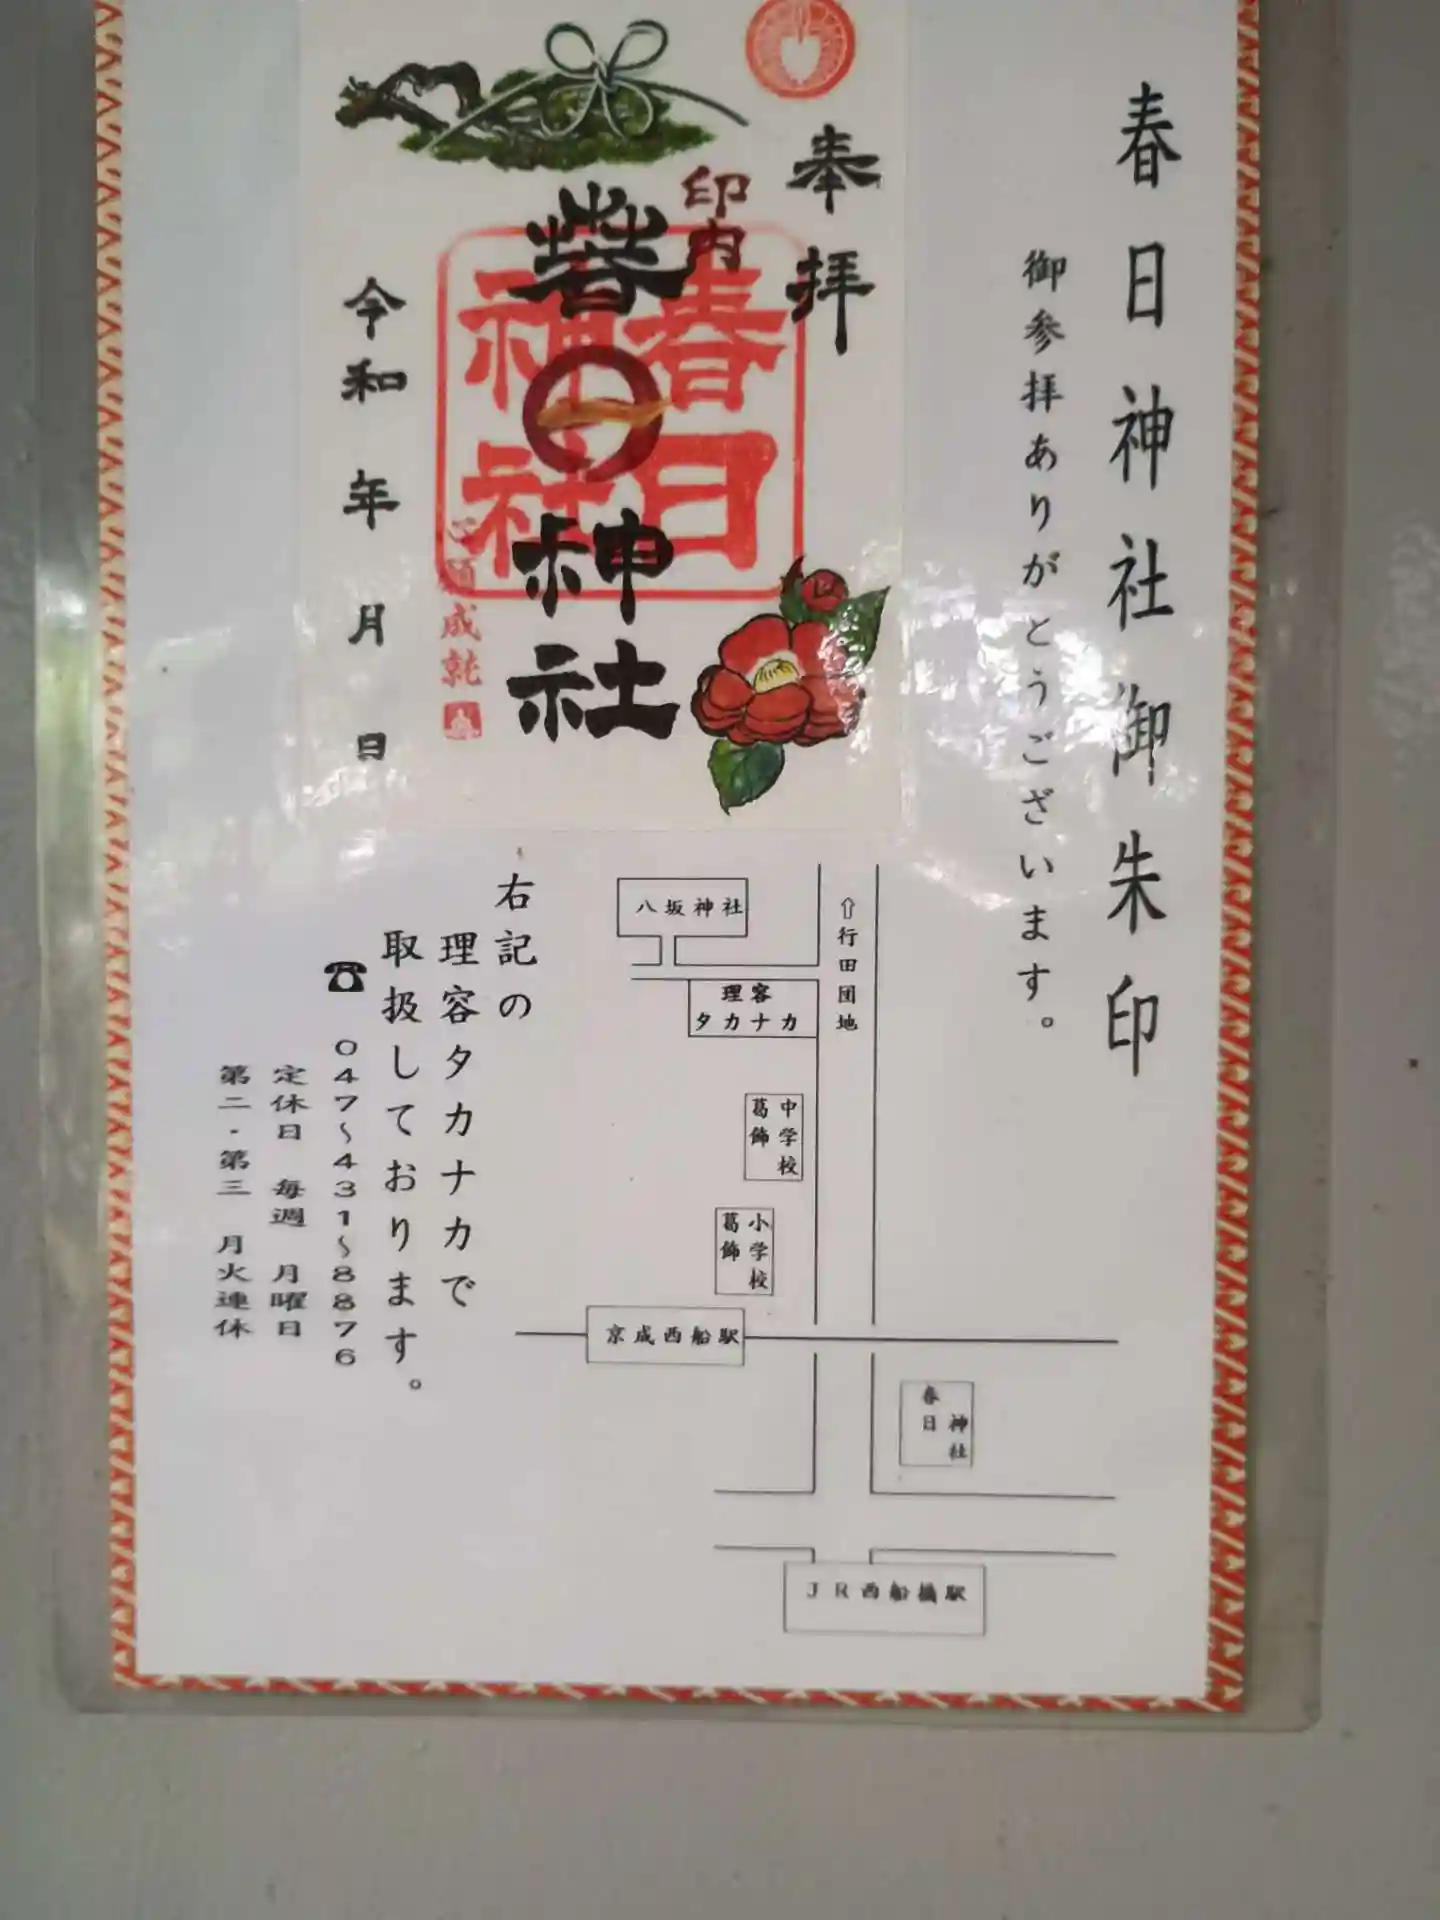 春日神社御朱印
御参拝ありがとうございます。
奉拝
印内
春日
神社
春日神社
心願成就
令和 年 月 日
⇧行田団地
八坂神社
理容
タカナカ
中学校
葛飾
小学校
葛飾
京成西船駅
春日
神社
JR西船橋駅
右記の
理容タカナカで
取扱しております。
☎ 047~431~8876
定休日 毎週 月曜日
第二・第三 月火連休